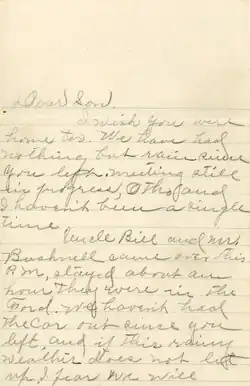 Dear Son.
I wish you were
home too. We have had
nothing but rain since
you left. meeting still
in progress, Otho and
I haven't been a single
time
Uncle Bill and Mrs
Bushnell came over this
P.M, stayed about an
hour they were in the
Ford. we haven't had
the car out since you
left, and if this rainy
weather does not let
up I fear we will